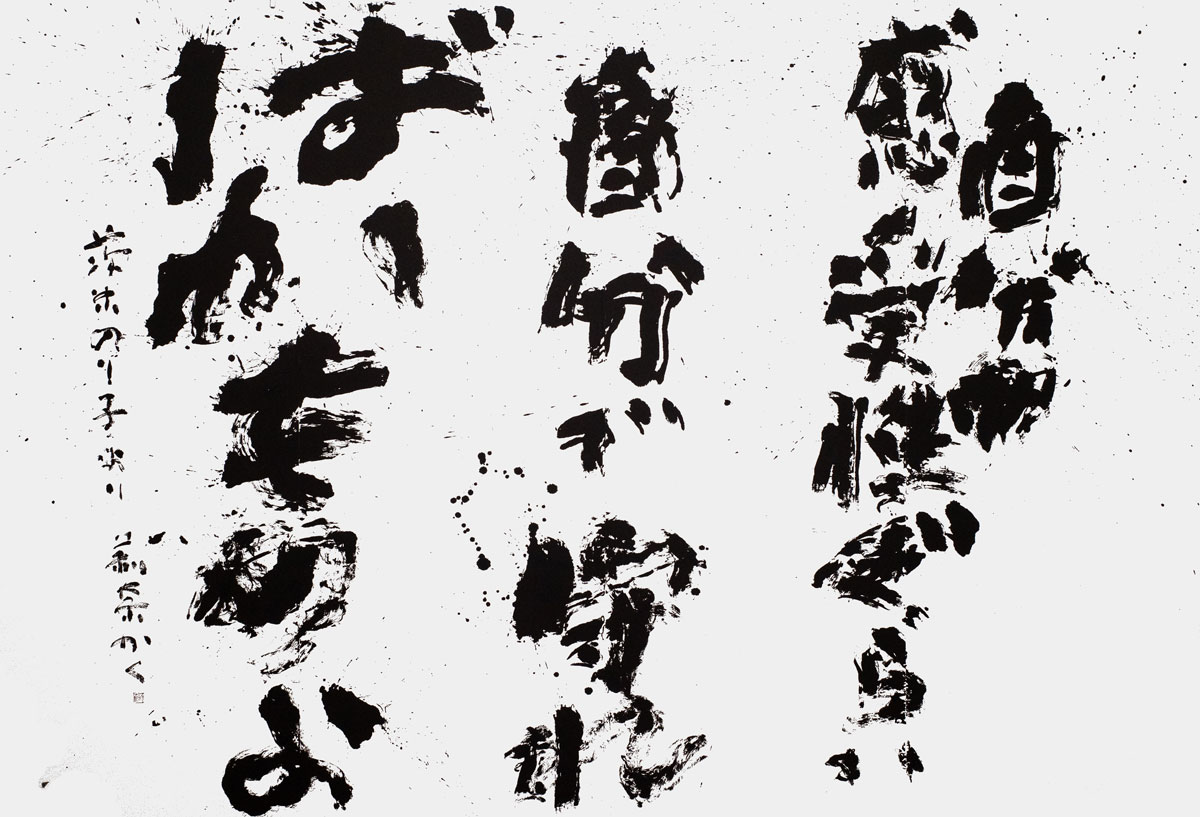 自分の
感受性ぐらい
自分で守れ
ばかものよ
茨木のり子
かく